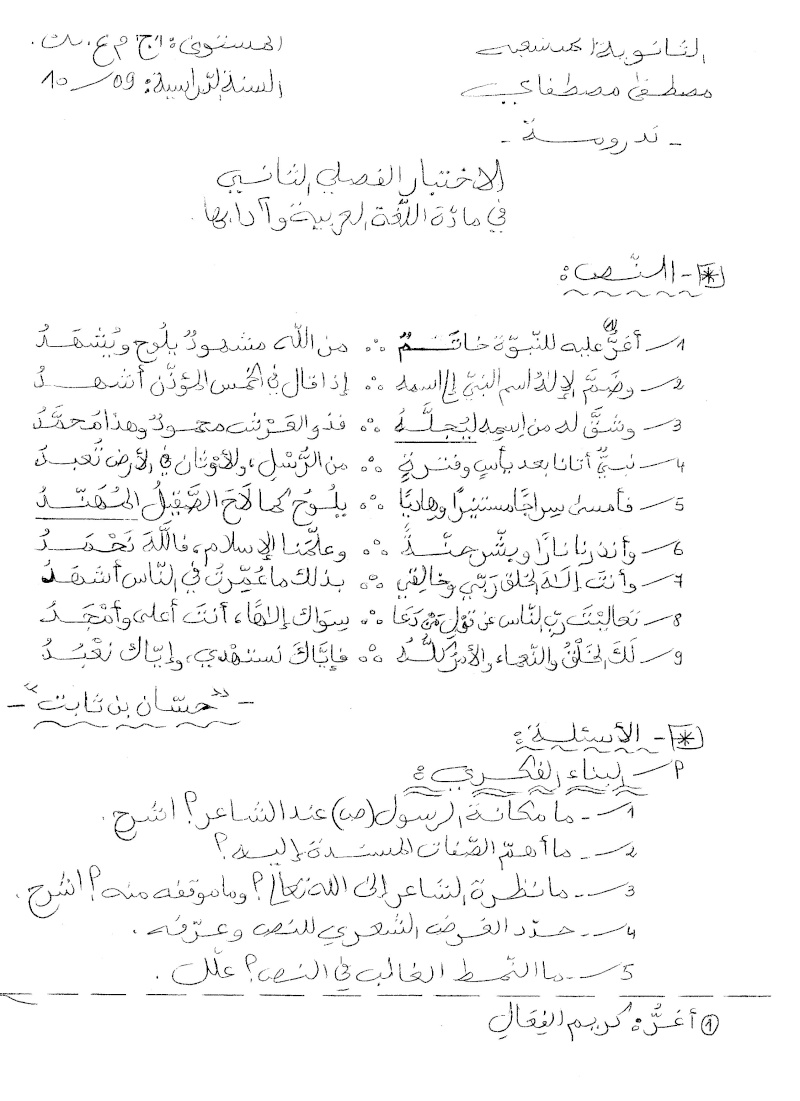 الثانوية المتشعبة المستوى: 1 ج م ع. ت.
مصطفى مصطفاي السنة الدّراسية: 09/10
- ندرومة -
الاختبار الفصلي الثاني
في مادّة اللّغة العربية وآدابها.
* - النّص:
1- أغرُّ(1) عليه للنّبوّة خاتَمٌ ∴ من اللّه مشهودٌ يلُوح ويُشهَدُ
2- وضمَّ الإلهُ اسم النبيّ إلى اسمه ∴ إذا قال في الخمس المؤذّن أشهدُ
3- وشقَّ له من اِسمِه ليُجِلَّهُ ∴ فذو العرْش محمودٌ وهذا مُحمَّدُ
4- نبيٌّ أتانا بعد يأسٍ وفترةٍ ∴ من الرُّسْلِ، والأوثان في الأرض تُعبدُ
5- فأمسى سِراجًا مستنيرًا وهاديًا ∴ يلُوحُ كما لاحَ الصَّقيلُ المُهَنّدُ
6- وأنذرنا نارًا وبشّر جنّةً ∴ وعلّمنا الإسلام، فاللّهَ نَحْمَدُ
7- وأنتَ إلَهُ الخلق ربّي وخالِقي ∴ بذلك ما عُمِّرتُ في النّاس أشهَدُ
8- تعاليْتَ ربّ النّاس عن قولِ مَنْ دَعَا ∴ سِوَاك إلاهًا، أنتَ أعلى وأمْجَدُ
9- لَكَ الخَلْقُ والنّعماء والأمرُ كلُّهُ ∴ فإيَّاكَ نستهدي، وإيّاك نعْبُدُ
- "حسّان بن ثابت" -
* - الأسئلة:
أ- البناء الفكري:
1- ما مكانة الرسول (ص) عند الشاعر؟ اشرح.
2- ما أهمّ الصّفات المسندة إليه؟
3- ما نظرة الشاعر إلى الله تعالى؟ وما موقفه منه؟ اشرح.
4- حدّد الغرض الشعري للنص وعرّفه.
5- ما النّمط الغالب في النص؟ علّل.
(1) أغرُّ: كريم الفِعَالِ